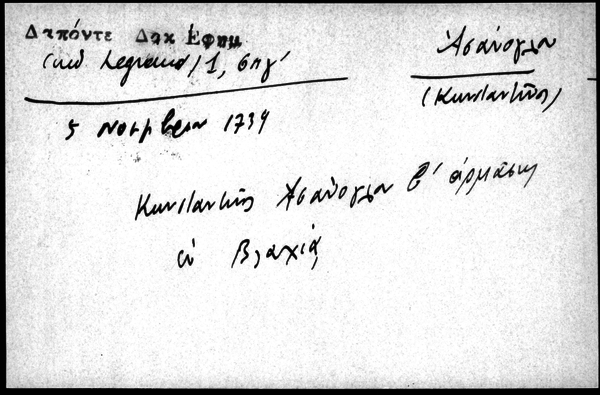 Δαπόντε Δακ Εφημ
(εκδ. Legrand) 1, σπγ´
Ἀσάνογλου
(Κωνσταντῖνος)
5 Νοεμβρίου 1739
Κωνσταντῖνος Ἀσάνογλου β´ ἁρμάσης
ἐν Βλαχίᾳ